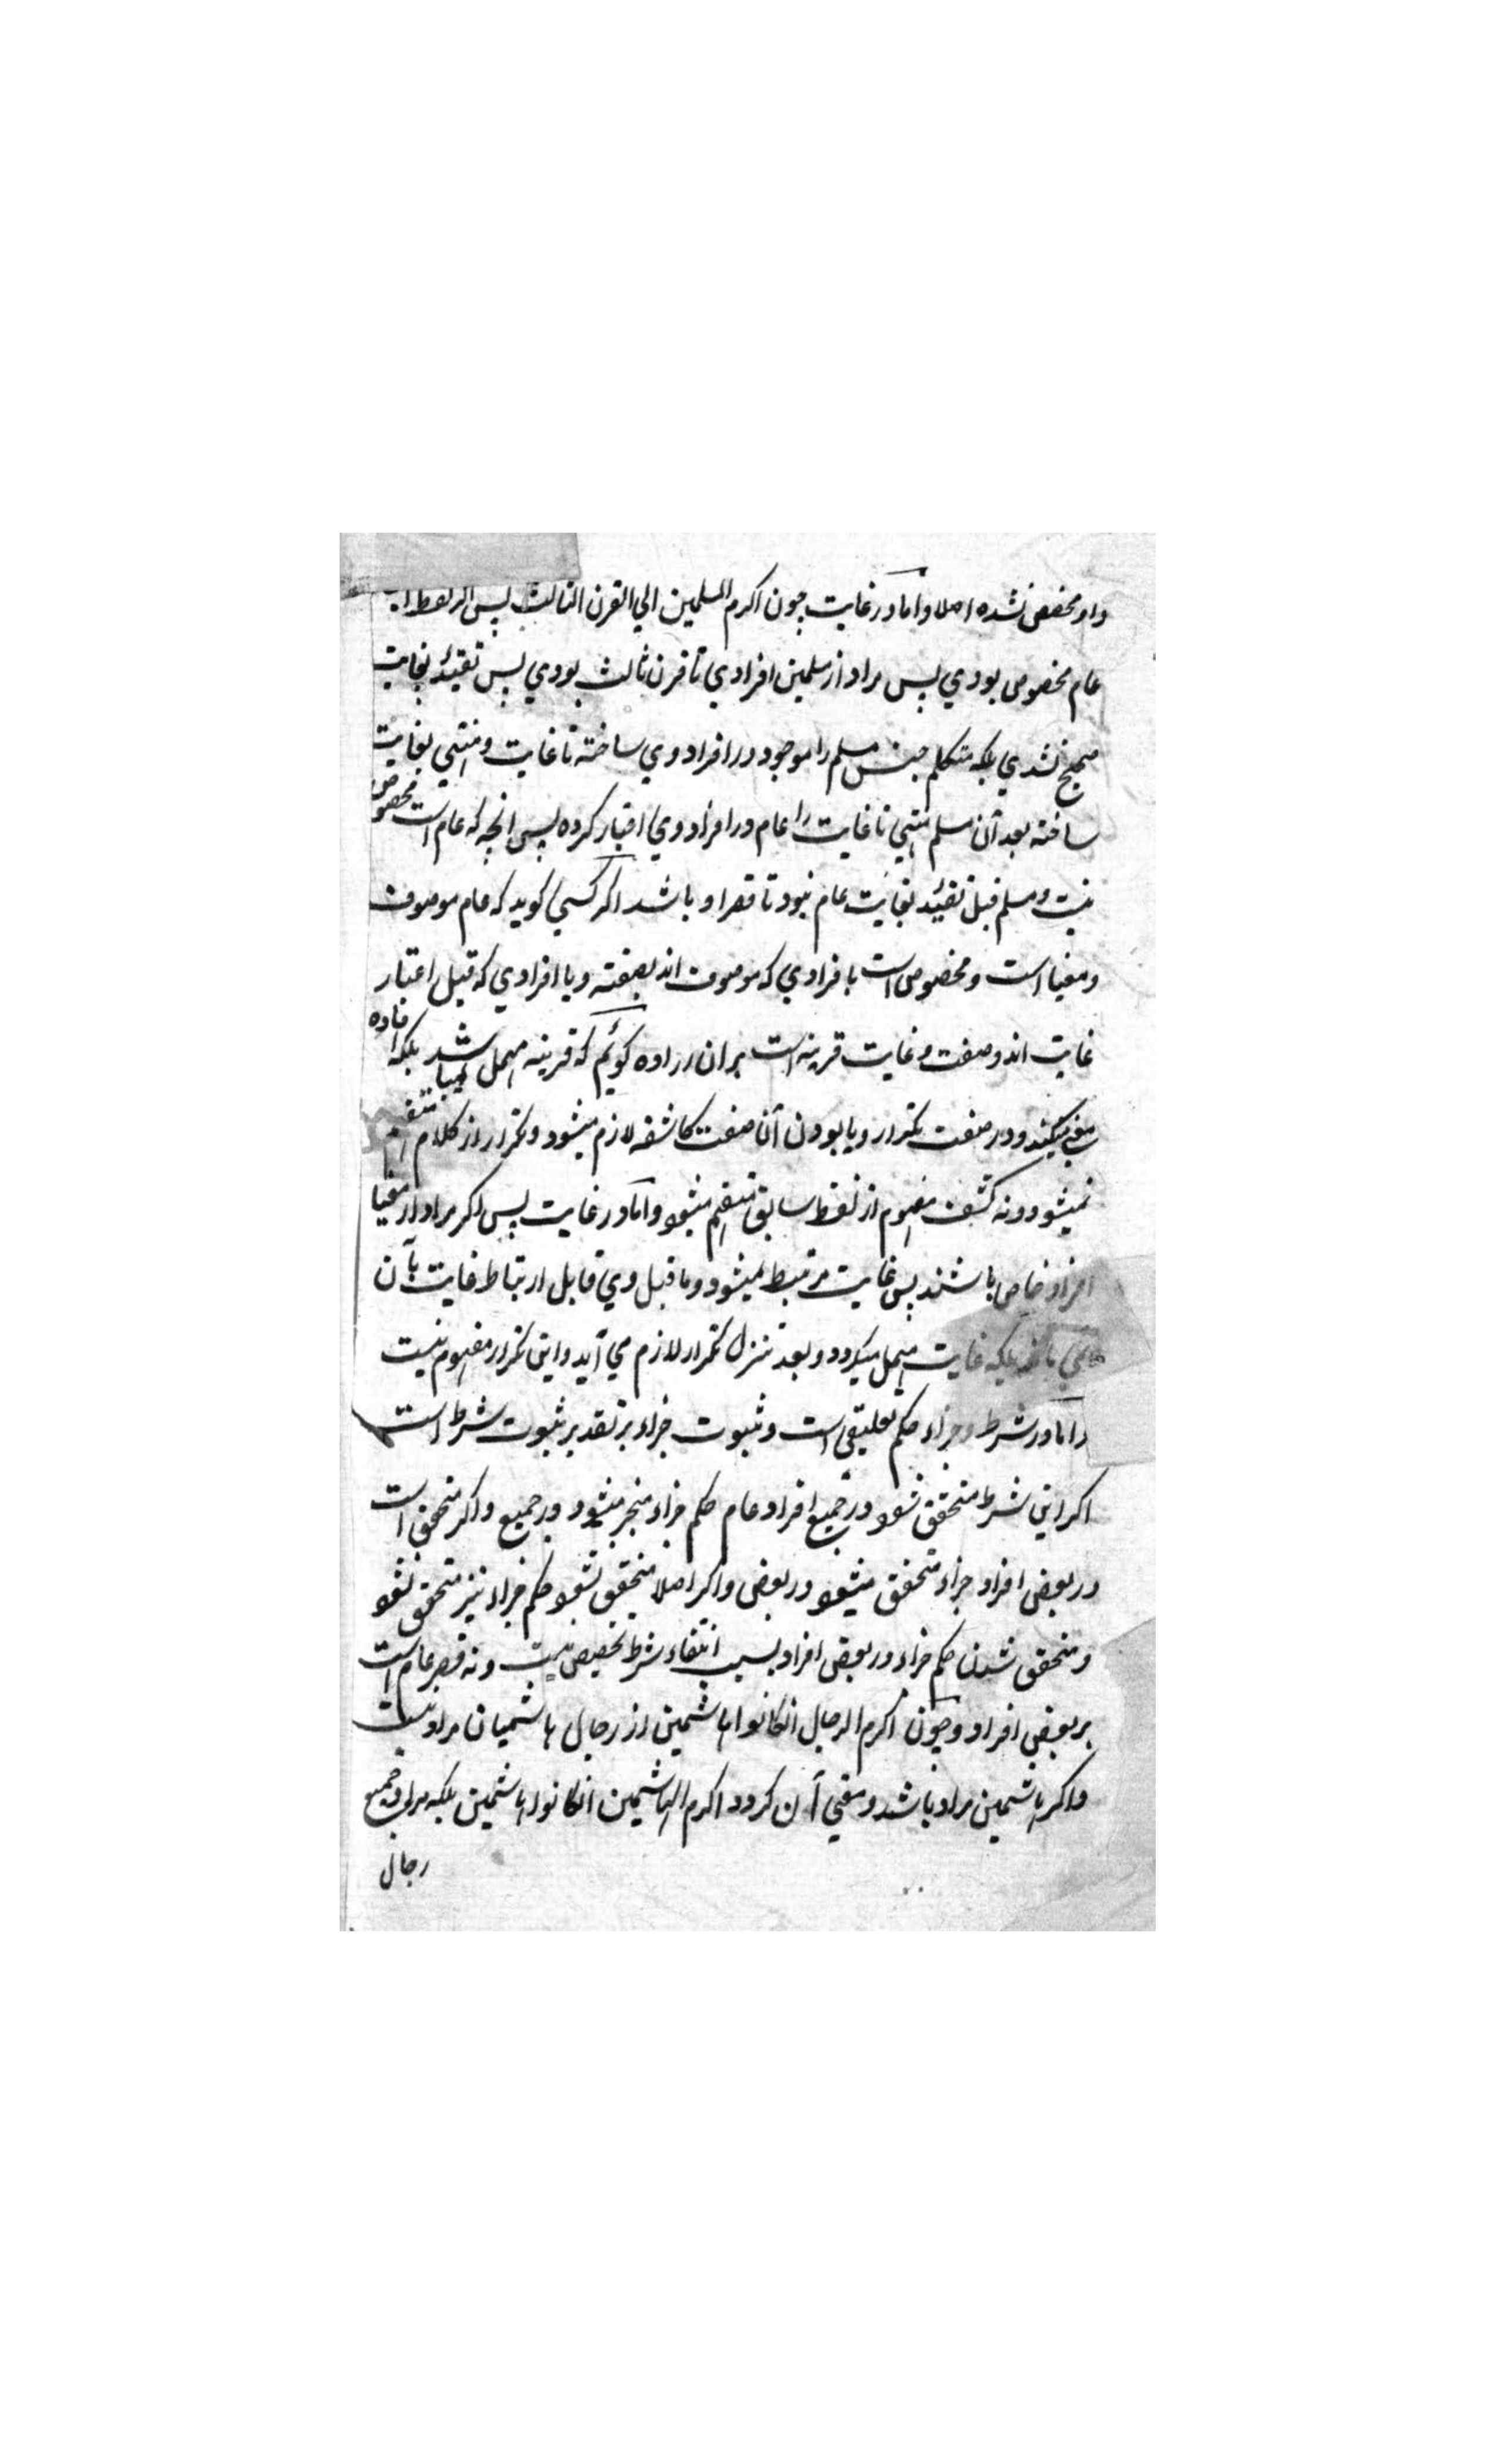 واو مخصص نشده اصلا واما در غایت چون اکرم المسلمین الي القرن الثالث پس اگر لفظ
عام مخصوص بودي پس مراد از مسلمین افرادي تا قرن ثالث بودي پس تقیید بغایت
صحیح نشدي بلکه متکلم جنس مسلم را موجود در افراد وي ساخته تا غایت و منتهي بغایت
ساخته بعد آن مسلم منتهي تا غایت را عام در افراد وي اعتبار کرده پس انچه که عام است مخصوص
نیست و مسلم قبل تقیید بغایت عام نبود تا قصر او باشد اکر کسي کوید که عام موصوف
و مغیا است و مخصوص است بافرادي که موصوف اند بصفته و یا افرادي که قبل اعتبار
غایت اند و صفت و غایت قرینه است بران اراده کوئیم که قرینه مهمل نمیباشد بلکه افاده
میکند و در صفت تکرار و یا بودن آن صفت کاشفه لازم میشود و تکرار از کلام
نمیشود و نه کشف مفهوم از لفظ سابق منفهم میشود واما در غایت پس اکر مراد از مغیا
افراد خاص باشند پس غایت مرتبط نمیشود و ما قبل وي قابل ارتباط غایت بآن
نمي ماند بلکه غایت مهمل میکردد و بعد تنزل تکرار لازم مي آید و این تکرار مفهوم نیست
واما در شرط و جزاء حکم تعلیقي است و ثبوت جزاء بر تقدیر ثبوت شرط است
اکر این شرط متحقق شود در جمیع افراد عام حکم جزاء منجر میشود در جمیع واکر متحقق است
در بعضی افراد جزاء متحقق میشود در بعضی واکر اصلا متحقق نشود حکم جزاء نیز متحقق نشود
و متحقق شدن حکم جزاء در بعضی افراد بسبب انتفاء شرط تخصیص نیست و نه قصر عام است
بر بعضی افراد و چون اکرم الرجال انکانوا هاشمین از رجال هاشمیان مراد نیست
واکر هاشمین مراد باشد و معني آن کردد اکرم الهاشمین انکانوا هاشمین بلکه مراد جمیع
رجال